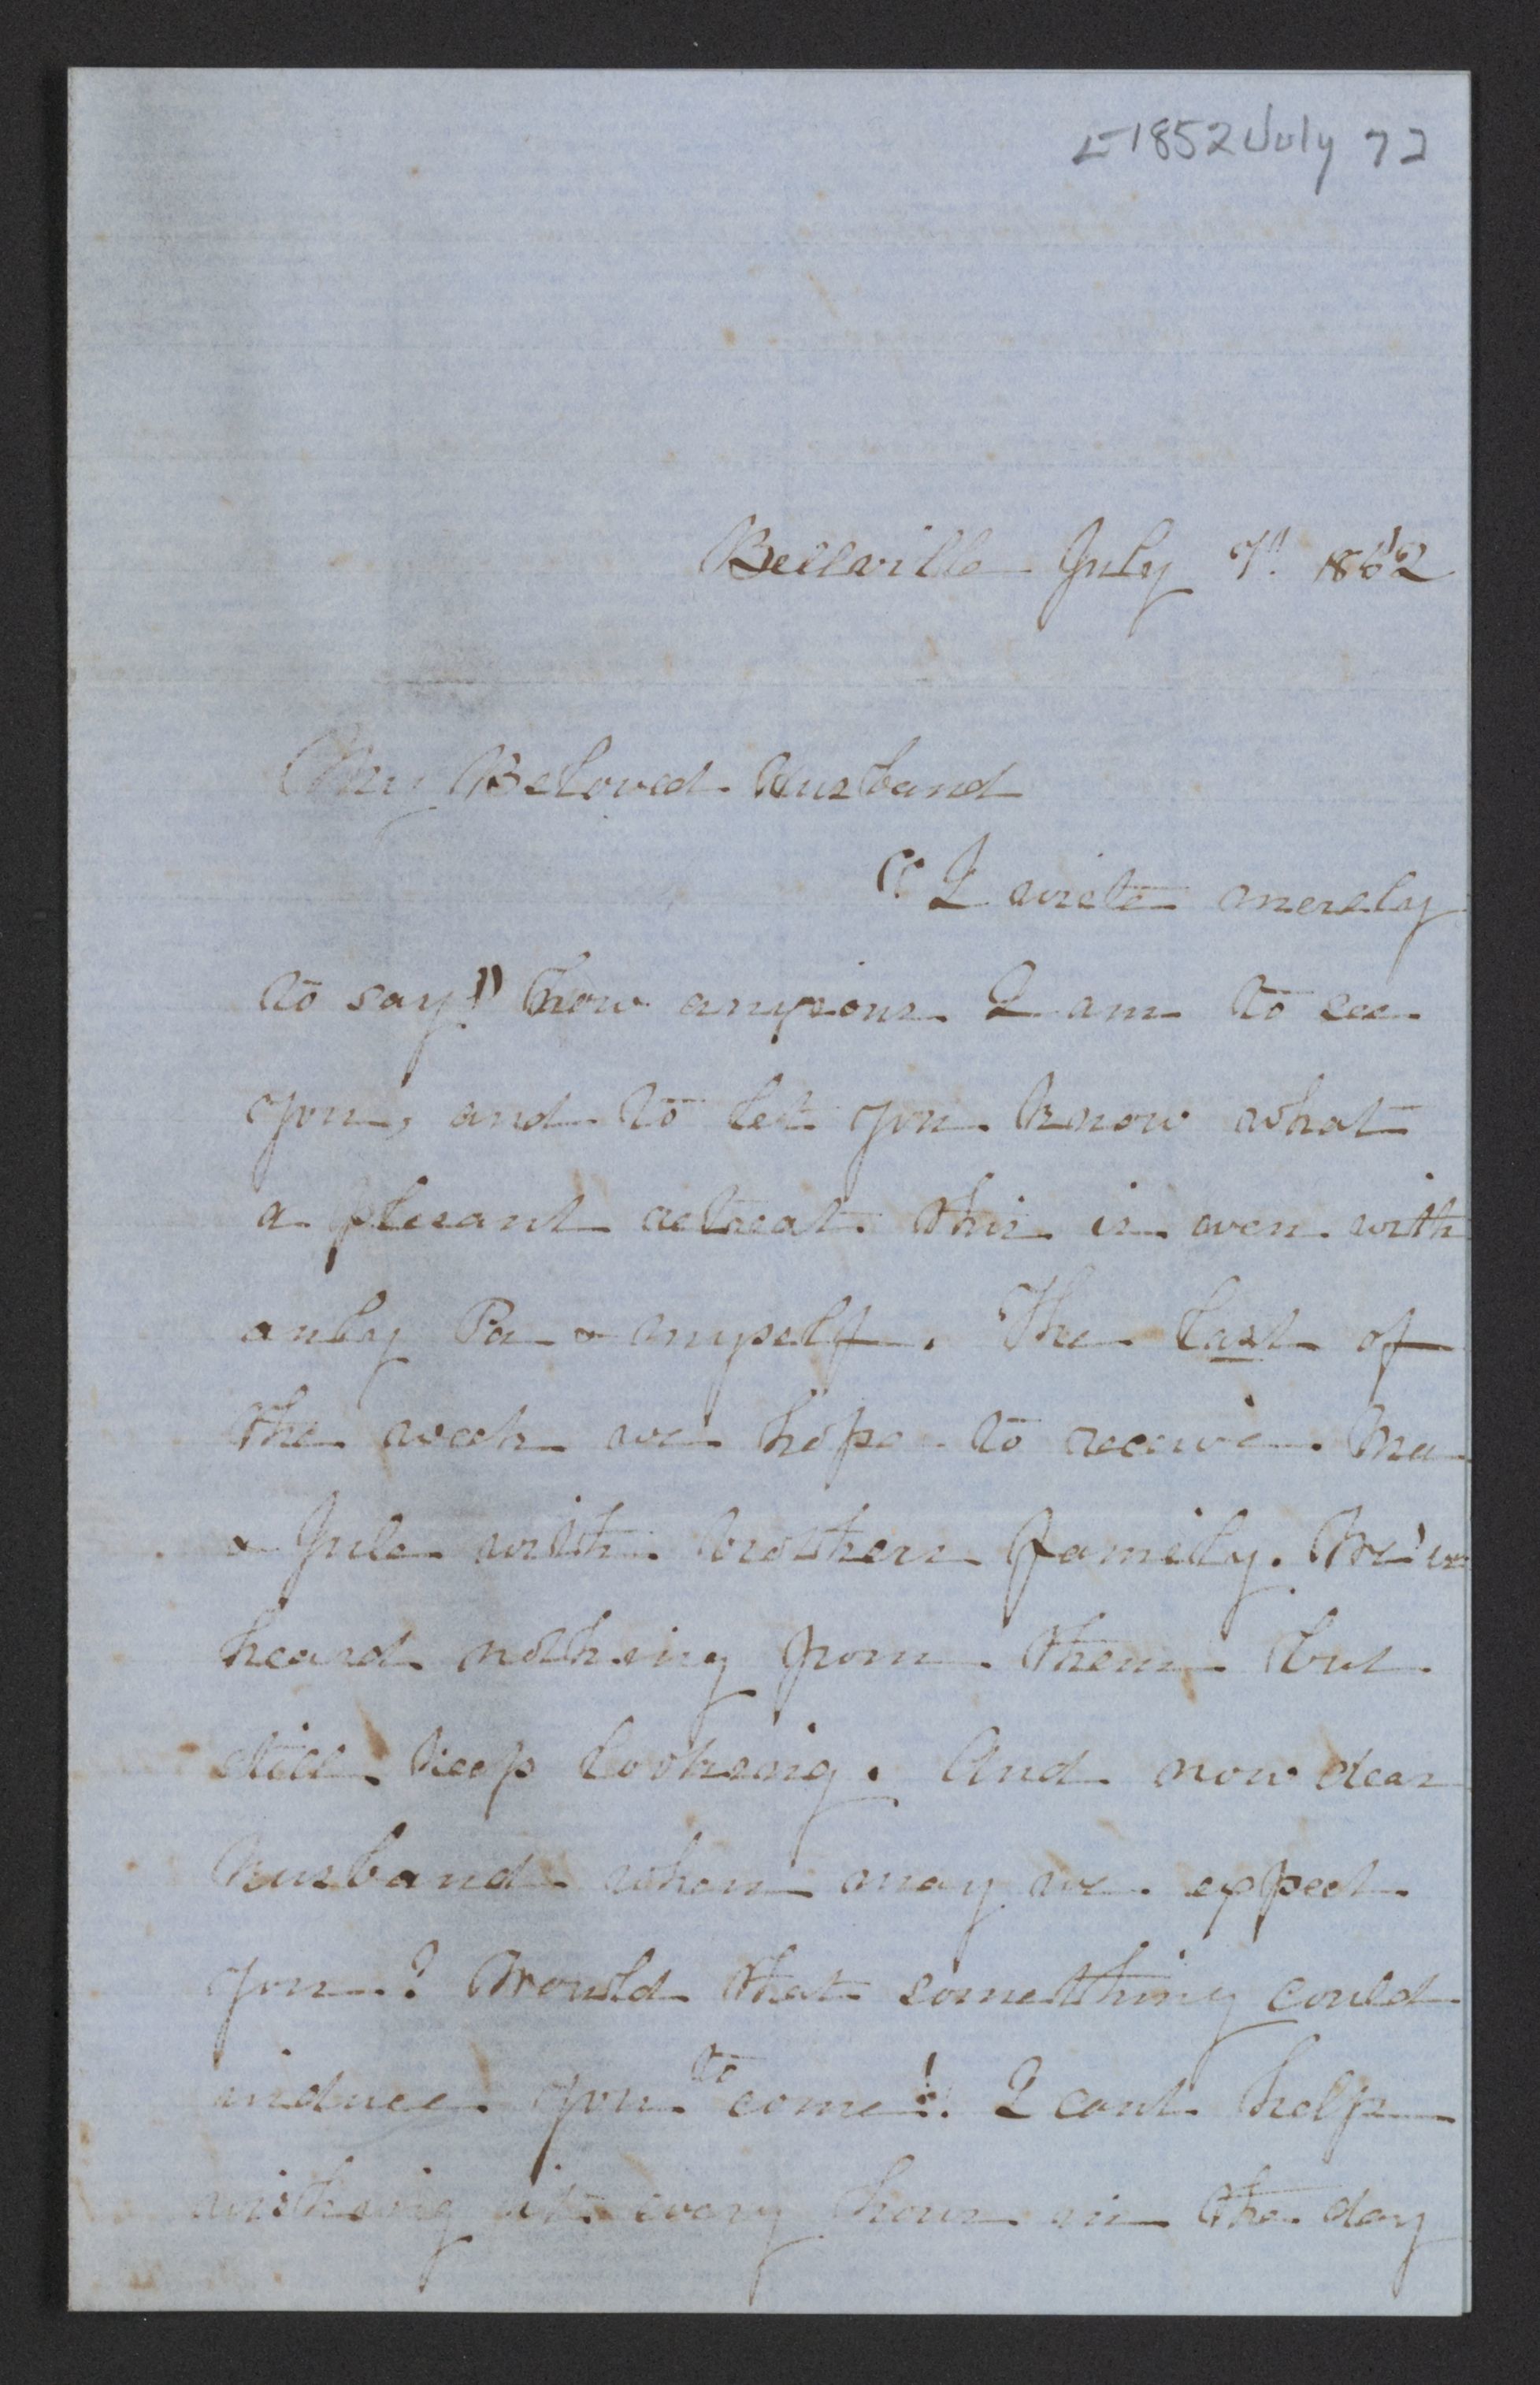 [1852 July 7]
Bellville July 7" 1852
My Beloved Husband
"I write merely
to say" how anxious I am to see
you, and to let you know what
a plesant retreat this is even with
only Pa & myself. The last of
the week we hope to receive Ma
& Jule with brothers family. We've
heard nothing from them but
still keep looking. And now dear
husband when may we expect
you? Would that something could
induce you to come! I cant help
wishing it every hour in the day